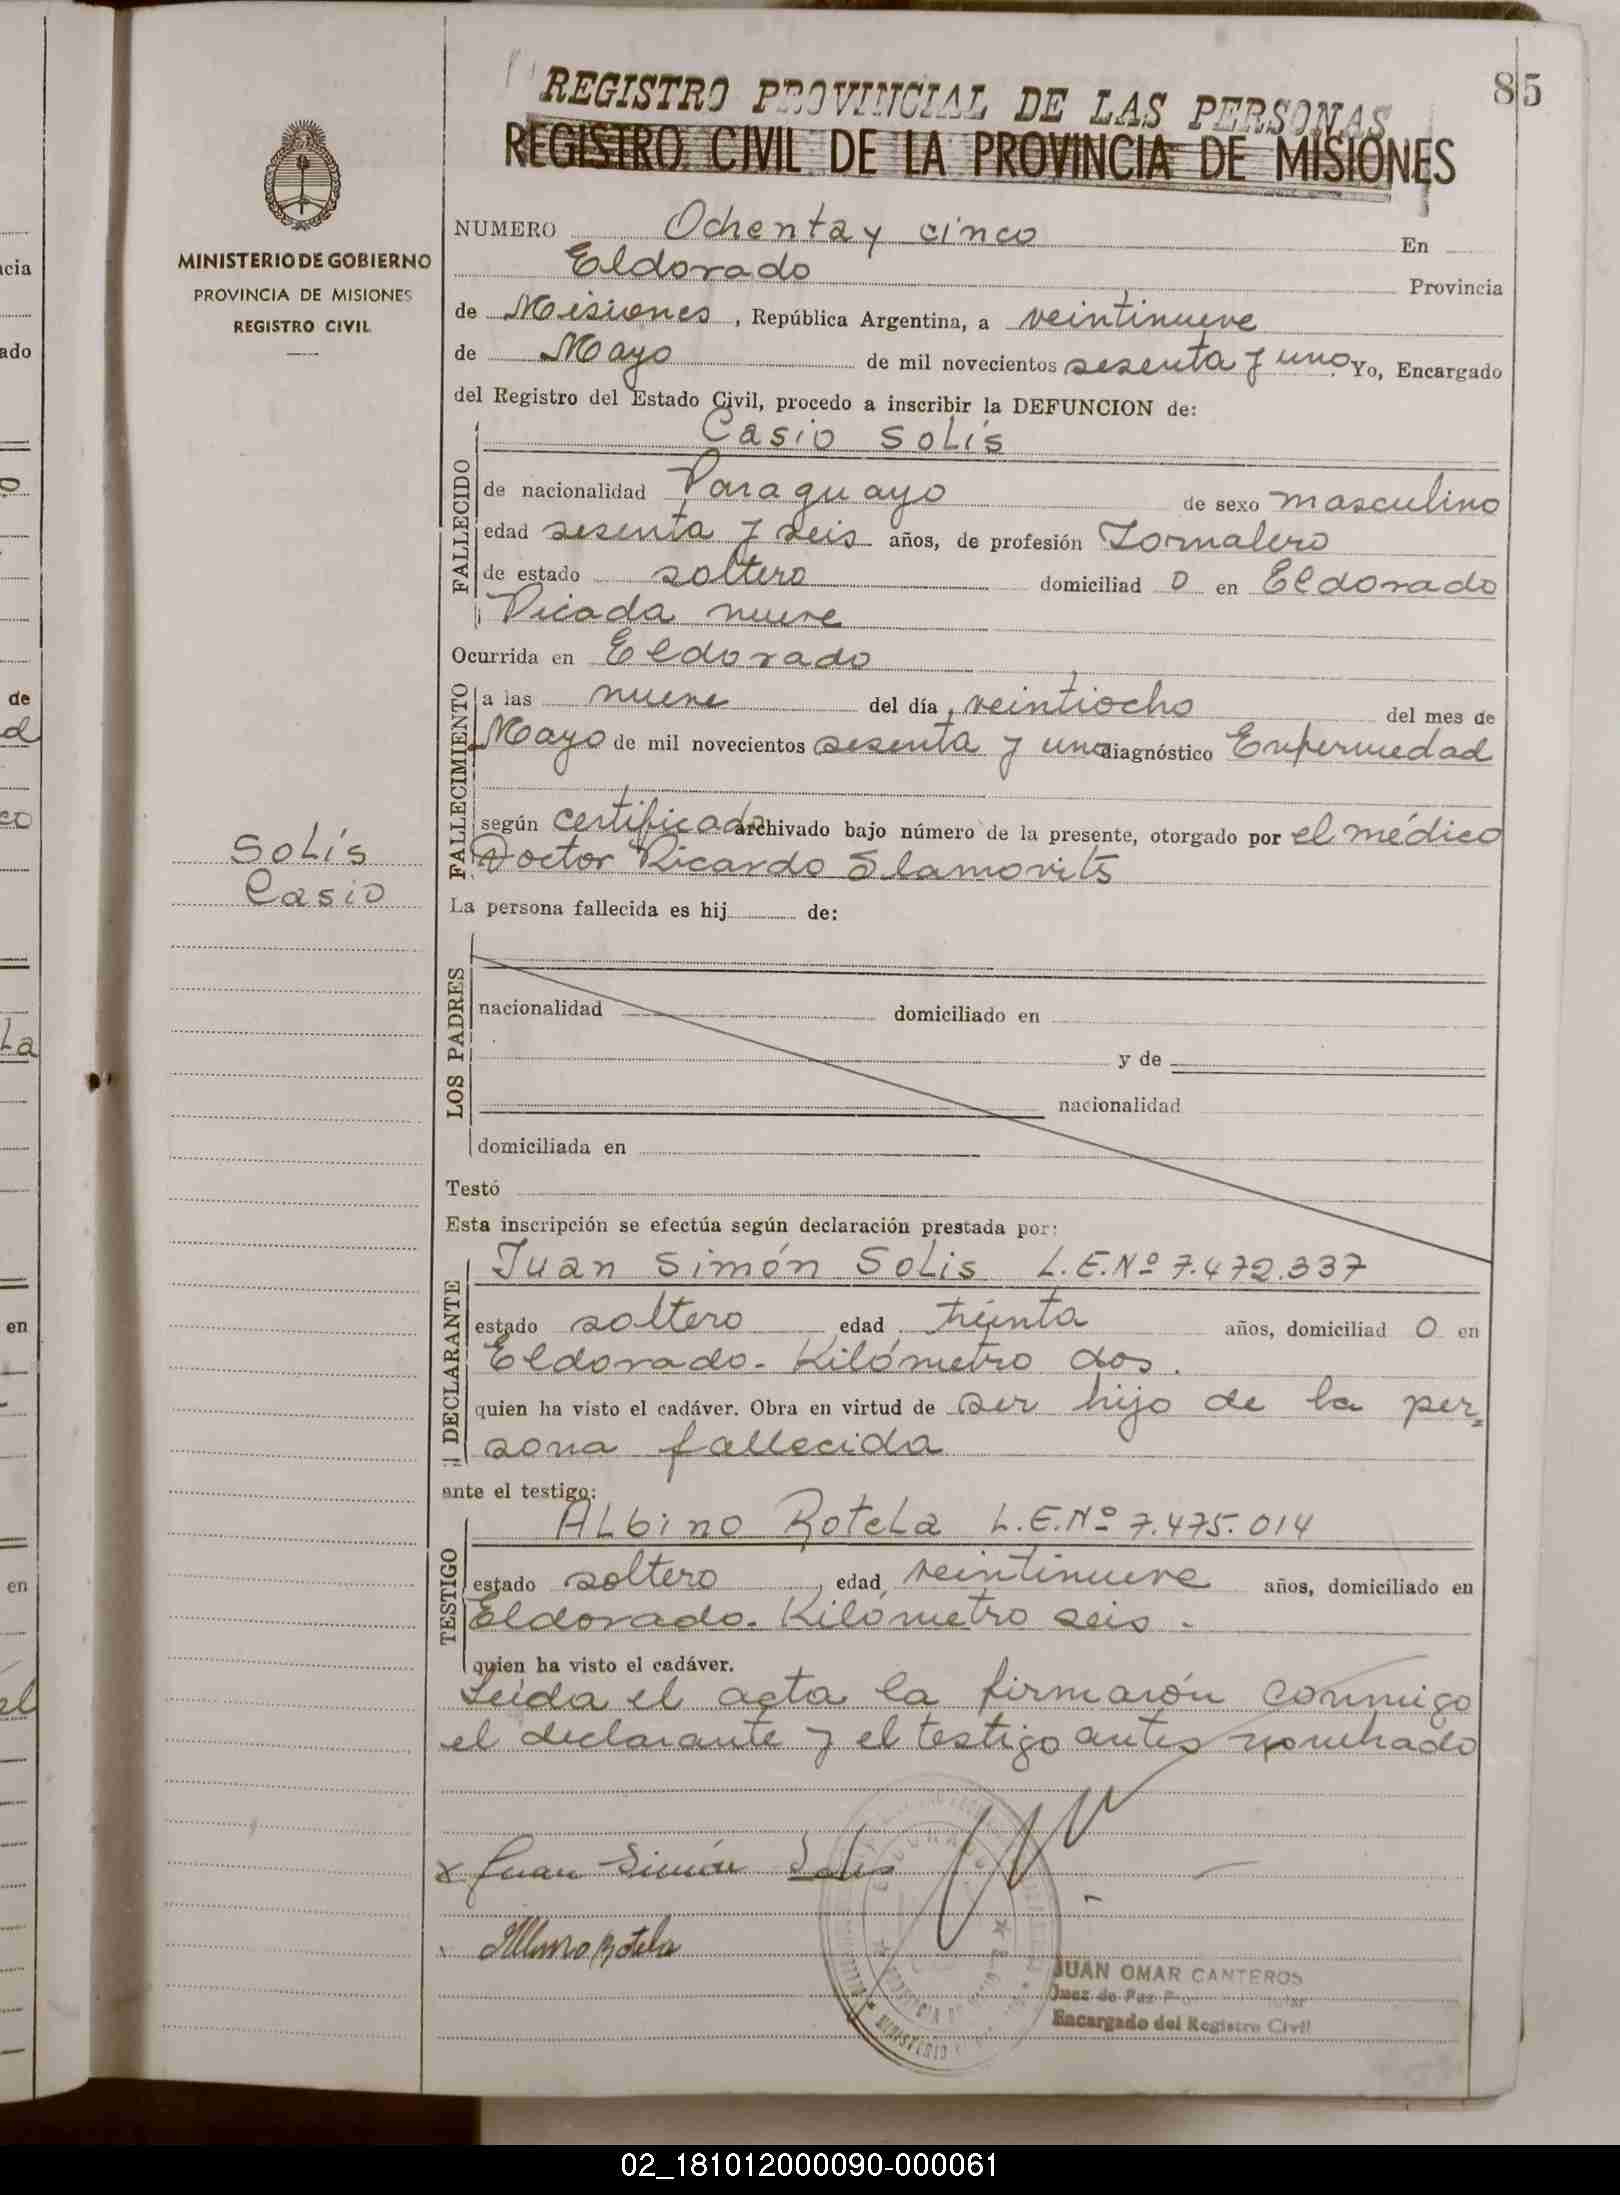 85
REGISTRO PROVINCIAL DE LAS PERSONAS
REGISTRO CIVIL DE LA PROVINCIA DE MISIONES
MINISTERIO DE GOBIERNO
PROVINCIA DE MISIONES
REGISTRO CIVIL
NUMERO Ochenta y cinco En
Eldorado Provincia
de Misiones, República Argentina, a veintinueve
de Mayo de mil novecientos sesenta y uno. Yo, Encargado
del Registro del Estado Civil, procedo a inscribir la DEFUNCION de:
Casio Solís
FALLECIDO
de nacionalidad Paraguayo de sexo masculino
edad sesenta y seis años, de profesión Jornalero
de estado soltero domiciliad o en Eldorado
Picada nueve
Ocurrida en Eldorado
FALLECIMIENTO
a las nueve del día, veintiocho del mes de
Mayo de mil novecientos sesenta y uno diagnóstico Enfermedad
según certificado archivado bajo número de la presente, otorgado por el médico
Doctor Ricardo Slamovits
Solís
Casio
La persona fallecida es hij de:
LOS PADRES
nacionalidad domiciliado en
y de
nacionalidad
domiciliada en
Testó
Esta inscripción se efectúa según declaración prestada por:
DECLARANTE
Juan Simón Solis L.E.Nº 7.472.337
estado soltero, edad treinta años, domiciliad o en
Eldorado. Kilómetro dos.
quien ha visto el cadáver. Obra en virtud de ser hijo de la per=
sona fallecida
ante el testigo:
TESTIGO
Albino Rotela L.E.Nº 7.475.014
estado soltero, edad veintinueve años, domiciliado en
Eldorado. Kilómetro seis.
quien ha visto el cadáver.
Leída el acta la firmarón conmigo
el declarante y el testigo antes nombrado
x Juan Simón Solis
Albino Rotela
JUAN OMAR CANTEROS
Juez de Paz
Encargado del Registro Civil
02_181012000090-000061